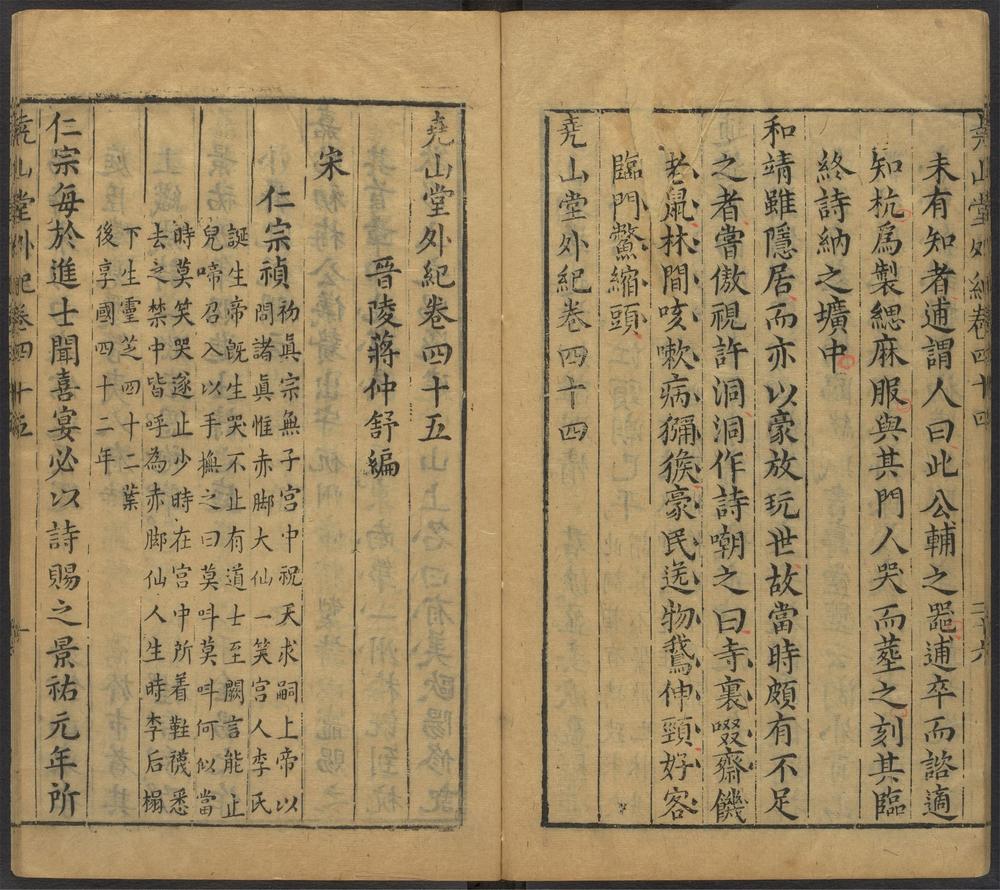 堯山堂外紀卷四十四
二十六
未有知者逋謂人曰此公輔之噐逋卒而諮適
知杭爲製緦麻服與其門人哭而塟之刻其臨
終詩納之壙中
和靖雖隱居而亦以豪放玩世故當時頗有不足
之者嘗傲視許洞洞作詩嘲之曰寺裏啜齋饑
老鼠林間咳嗽病獼猴豪民送物鵞伸頸好客
臨門鱉縮頭
堯山堂外紀卷四十四
堯山堂外紀卷四十五
晋陵蔣仲舒編
宋
仁宗禎
初眞宗無子宫中祝天求嗣上帝以
問諸眞惟赤脚大仙一笑宫人李氏
誕生帝旣生哭不止有道士至闕言能止
兒啼召入以手撫之曰莫呌莫呌何似當
時莫笑哭遂止少時在宫中所着鞋襪悉
去之禁中皆呼為赤脚仙人生時李后榻
下生靈芝四十二葉
後享國四十二年
仁宗每於進士聞喜宴必以詩賜之景祐元年所
堯山堂外紀卷四十五
一